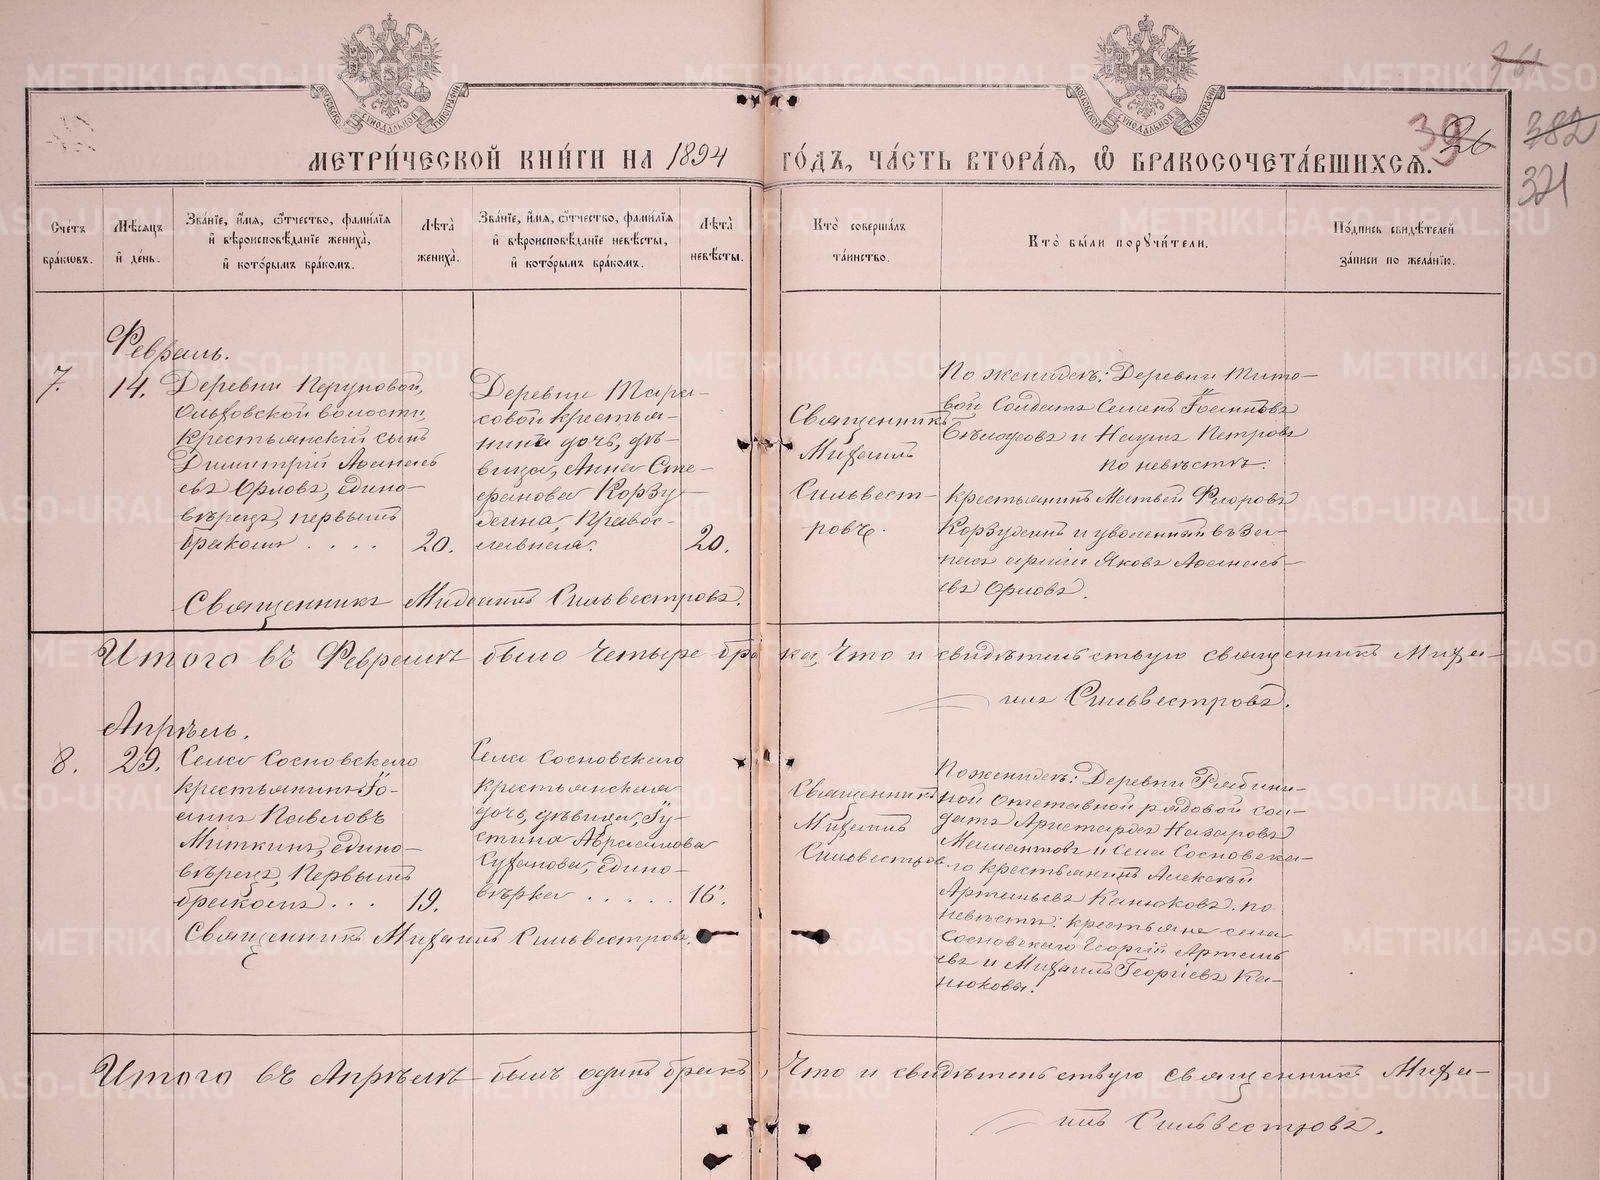 METRIKI.GASO-URAL.RU
МЕТРИ́ЧЕСКОЙ КНИ́ГИ НА 1894 ГО́ДЪ, ЧА́СТЬ ВТОРА́Я, Ѽ БРАКОСОЧЕТА́ВШИХСЯ.
39
26
382
321
Сче́тъ бра́кѡвъ.
Мѣ́сяцъ и҆ де́нь.
Зва́нїе, и҆́мя, ѻ҆́тчество, фами́лїя и҆ вѣроисповѣ́данїе жениха̀, и҆ кото́рымъ бра́комъ.
Лѣ́та жениха̀.
Зва́нїе, и҆́мя, ѻ҆́тчество, фами́лїя и҆ вѣроисповѣ́данїе невѣ́сты, и҆ кото́рымъ бра́комъ.
Лѣ́та невѣ́сты.
Кто̀ соверша́лъ та́инство.
Кто̀ бы́ли порꙋчи́тели.
По́дпись свидѣ́телей за́писи по жела́нїю.
Февраль.
7.
14.
Деревни Перуновой,
Ольховской волости,
крестьянскій сынъ
Димитрій Аѳанась
евъ Орловъ, едино-
вѣрецъ, первымъ
бракомъ . . . .
20.
Деревни Тара-
совой крестья-
нина дочь, дѣ-
вица, Анна Сте-
фанова Корзу
хина, Правос-
лавная.
20.
Священникъ
Михаилъ
Сильвест-
ровъ.
По женихѣ: Деревни Тито-
вой Солдатъ Семенъ Іоанновъ
Бѣлоусовъ и Наумъ Петровъ
по невѣстѣ:
крестьянинъ Матвей Флоровъ
Корзухинъ и уволенный въ за-
пасъ арміи Яковъ Аѳанась-
евъ Орловъ.
Священникъ Михаилъ Сильвестровъ.
Итого въ Февралѣ было четыре бра ка, Что и свидѣтельствую священникъ Миха-
илъ Сильвестровъ.
Апрѣль.
8.
29.
Села Сосновскаго
крестьянинъ Іо-
аннъ Павловъ
Миткинъ, едино-
вѣрецъ, Первымъ
бракомъ . . .
19.
Села Сосновскаго
крестьянская
дочь, дѣвица, Іу-
стина Авраамова
Суханова, едино-
вѣрка . . . . .
16.
Священникъ
Михаилъ
Сильвестровъ.
По женихѣ: Деревни Рябини-
ной отставной рядовой сол-
датъ Аристархъ Назаровъ
и села Сосновска-
го крестьянинъ Алексѣй
Артемьевъ Канюковъ. по
невѣстѣ: крестьяне села
Сосновскаго Георгій Артемь
евъ и Михаилъ Георгіевъ Ка-
нюковы.
Священникъ Михаилъ Сильвестровъ.
Итого въ Апрѣлѣ былъ одинъ бракъ, Что и свидѣтельствую священникъ Миха-
илъ Сильвестровъ.